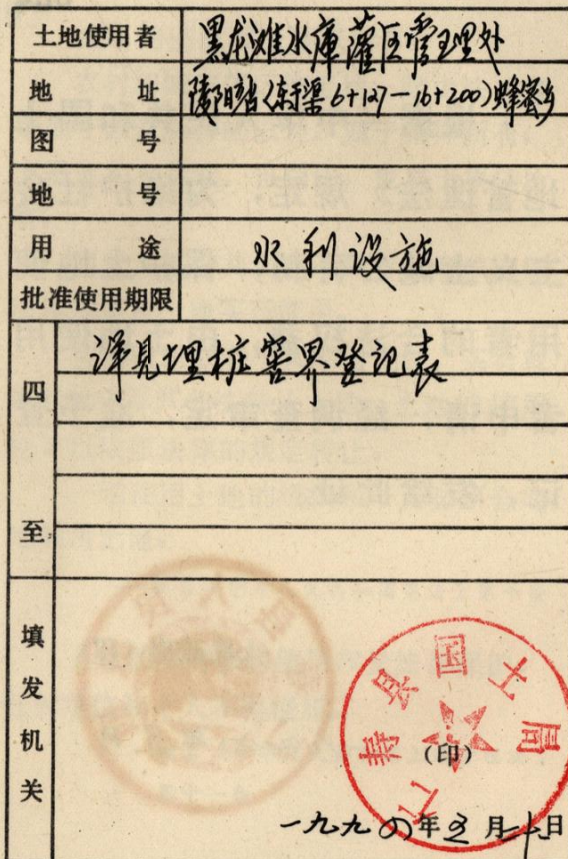 土地使用者 黑龙滩水庫灌区管理处
地址 陵阳站(东干渠6+127—16+200)蜂蜜乡
图号
地号
用途 水利设施
批准使用期限
四至 详见埋桩窖界登记表
填发机关
仁寿县国土局
(印)
一九九〇年 月 日